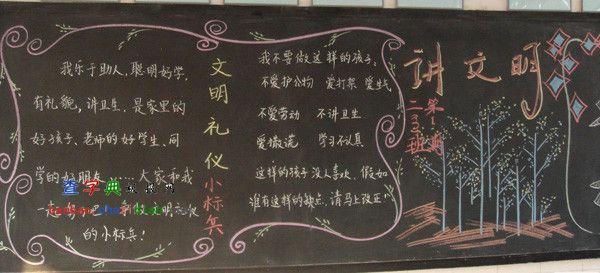 我乐于助人，聪明好学，
有礼貌，讲卫生，是家里的
好孩子、老师的好学生、同
学的好朋友……大家和我
一起 做文明礼仪
的小标兵！
文明礼仪小标兵
我不要做这样的孩子：
不爱护公物 爱打架 爱生气
不爱劳动 不讲卫生
爱撒谎 学习不认真
这样的孩子没人喜欢，假如
谁有这样的缺点，请马上改正！
讲文明
二班
查字典